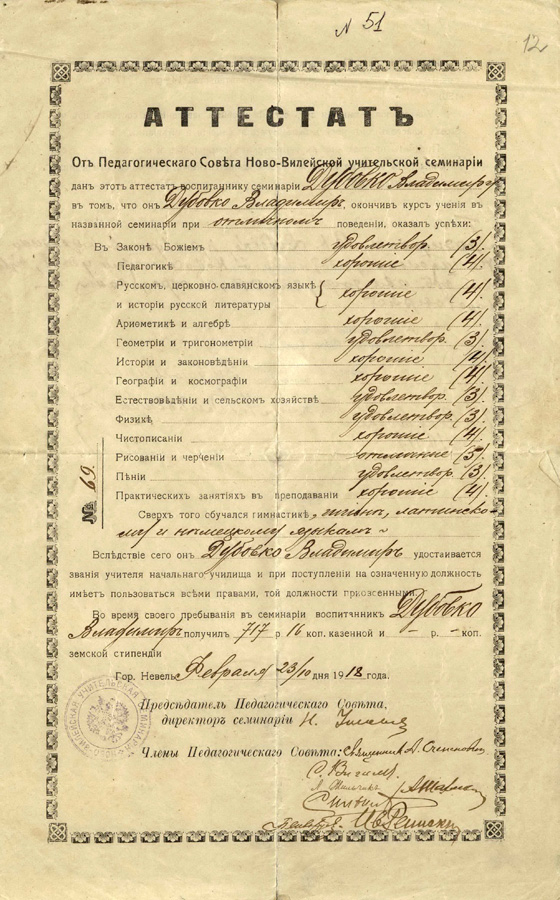 № 51
12
АТТЕСТАТЪ
Отъ Педагогическаго Совѣта Ново-Вилейской учительской семинаріи
данъ этотъ аттестатъ воспитаннику семинаріи Дубовко Владимиру
въ томъ, что онъ Дубовко Владимиръ, окончивъ курсъ ученія въ
названной семинаріи при отличномъ поведеніи, оказалъ успѣхи:
Въ Законѣ Божіемъ удовлетвор. (3).
Педагогикѣ хорошіе (4).
Русскомъ, церковно-славянскомъ языкѣ
и исторіи русской литературы { хорошіе (4).
Ариөметикѣ и алгебрѣ хорошіе (4).
Геометріи и тригонометріи удовлетвор. (3).
Исторіи и законовѣдѣніи хорошіе (4).
Географіи и космографіи хорошіе (4).
Естествовѣдѣніи и сельскомъ хозяйствѣ удовлетвор. (3).
Физикѣ удовлетвор. (3).
Чистописаніи хорошіе (4).
Рисованіи и черченіи отличные (5).
Пѣніи удовлетвор. (3).
Практическихъ занятіяхъ въ преподаваніи хорошіе (4).
№ 69.
Сверхъ того обучался гимнастикѣ, латинско-
му и нѣмецкому языкамъ
Вслѣдствіе сего онъ Дубовко Владимиръ удостаивается
званія учителя начальнаго училища и при поступленіи на означенную должность
имѣетъ пользоваться всѣми правами, той должности присвоенными.
Во время своего пребыванія въ семинаріи воспитанникъ Дубовко
Владимиръ получилъ 717 р. 16 коп. казенной и - р. - коп.
земской стипендіи
Гор. Невель Февраля 23/10 дня 1918 года.
Предсѣдатель Педагогическаго Совѣта,
директоръ семинаріи Н.
Члены Педагогическаго Совѣта: Священник А.
С.